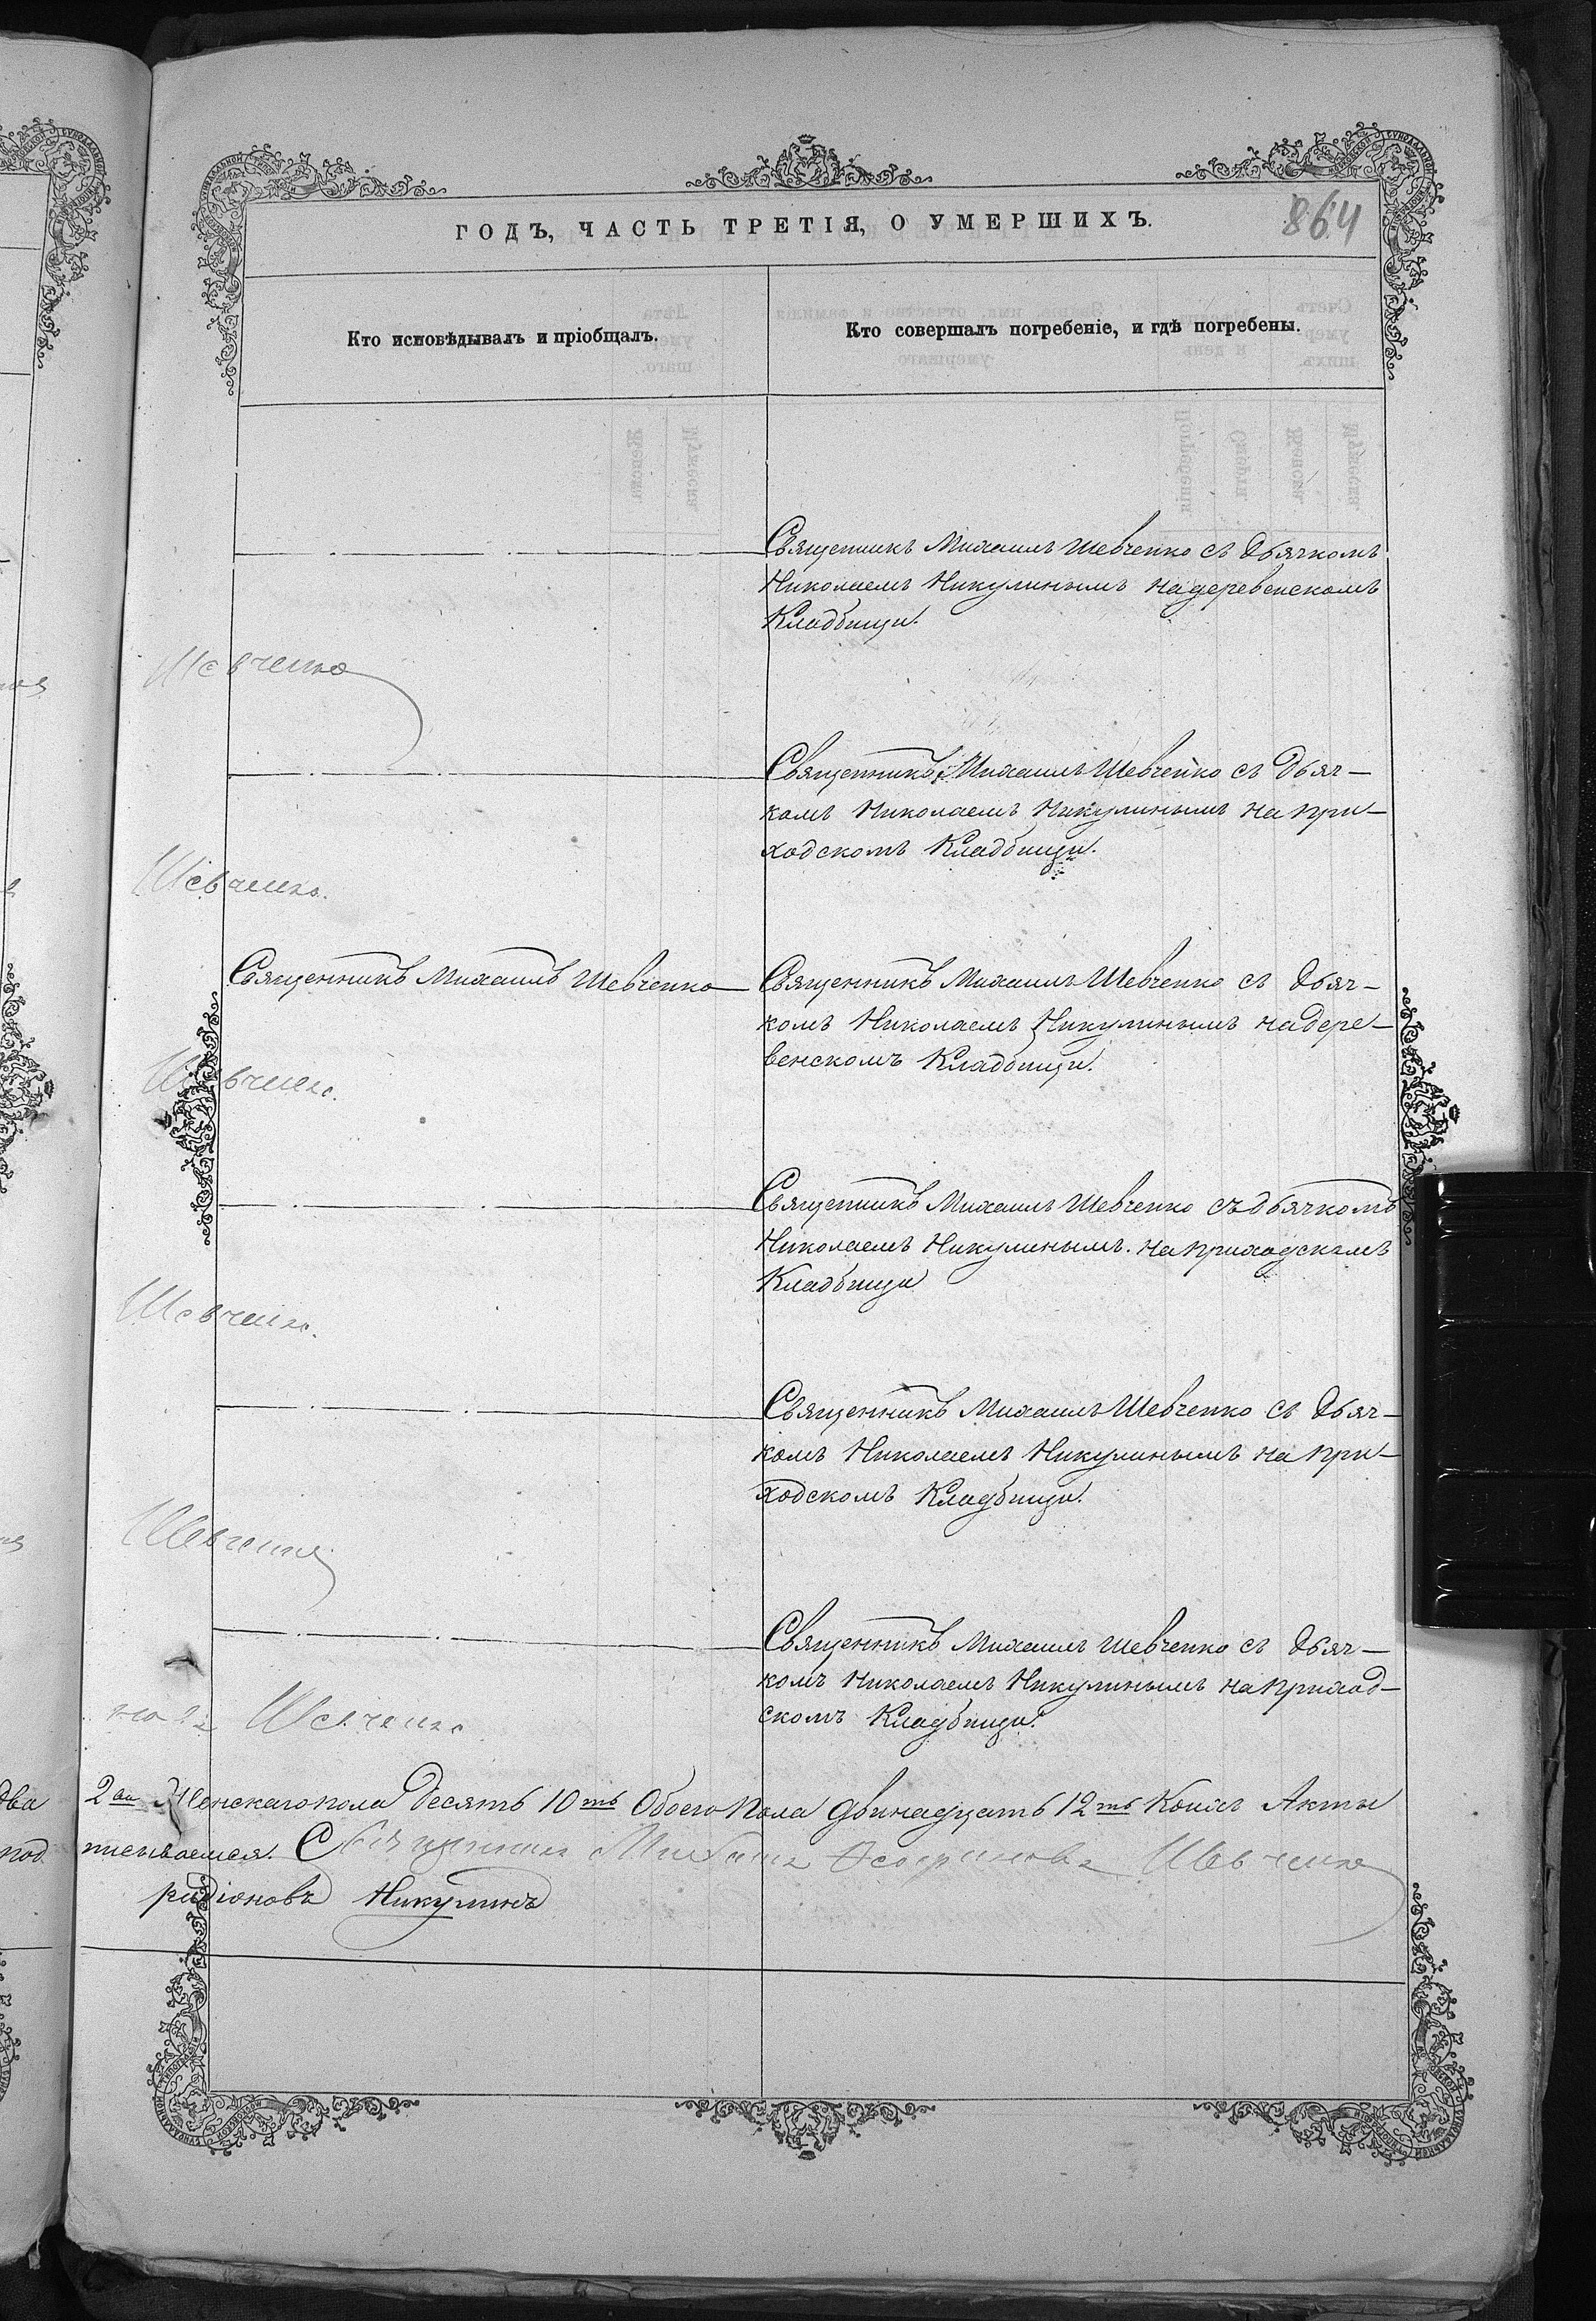 ГОДЪ, ЧАСТЬ ТРЕТІЯ, О УМЕРШИХЪ.
864
Кто исповѣдывалъ и пріобщалъ.
Кто совершалъ погребеніе, и гдѣ погребены.
Священникъ Михаилъ Шевченко съ дьячкомъ
Николаемъ Никулинымъ на деревенскомъ
Кладбищи.
Шевченко
Священникъ Михаилъ Шевченко съ дьяч-
комъ Николаемъ Никулинымъ на при-
ходскомъ Кладбищи.
Шевченко.
Священникъ Михаилъ Шевченко
Священникъ Михаилъ Шевченко съ дьяч-
комъ Николаемъ Никулинымъ на дере-
венскомъ Кладбищи.
Шевченко.
Священникъ Михаилъ Шевченко съ дьячкомъ
Николаемъ Никулинымъ. на приходскомъ
Кладбищи
Шевченко.
Священникъ Михаилъ Шевченко съ дьяч-
комъ Николаемъ Никулинымъ на при-
ходскомъ Кладбищи.
Шевченко
Священникъ Михаилъ Шевченко съ дьяч-
комъ Николаемъ Никулинымъ на приход-
скомъ Кладбищи.
Шевченко
два 2ва Женскаго пола десять 10ть Обоего пола двинадцать 12ть Коихъ Акты
под писываемся. Священникъ Михаилъ Шевченко
Никулинъ